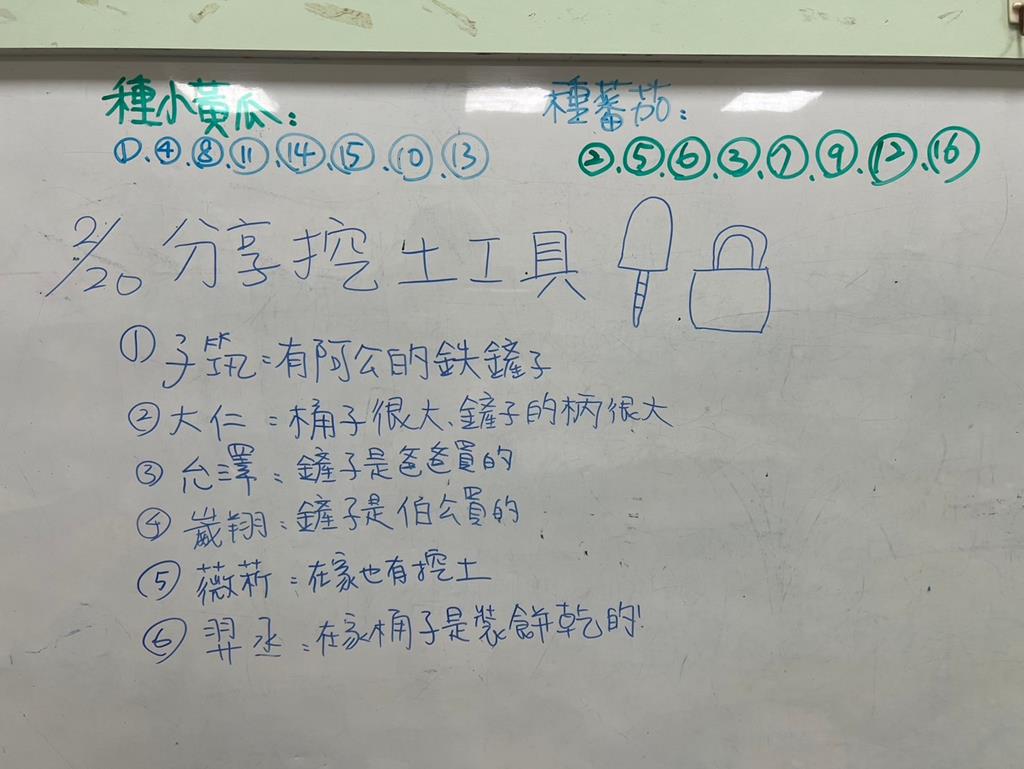 種小黃瓜:
①、④、⑧、⑪、⑭、⑮、⑩、⑬
種蕃茄:
②、⑤、⑥、③、⑦、⑨、⑫、⑯
2/20 分享挖土工具
① 子筑:有阿公的鉄鏟子
② 大仁:桶子很大、鏟子的柄很大
③ 允澤:鏟子是爸爸買的
④ 崴翔:鏟子是伯公買的
⑤ 薇菥:在家也有挖土
⑥ 羿丞:在家桶子是裝餅乾的!